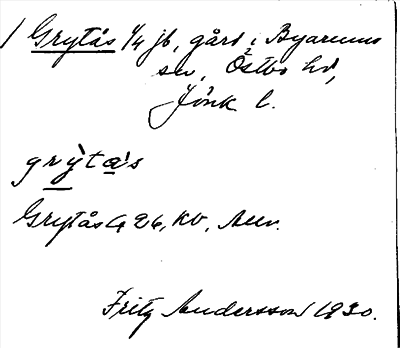 Grytås 1/4 jb, gård i Byarums
sn, Östbo hd,
Jönk l.
grỳta's
Grytås G 26, KV,
Fritz Andersson 1930.